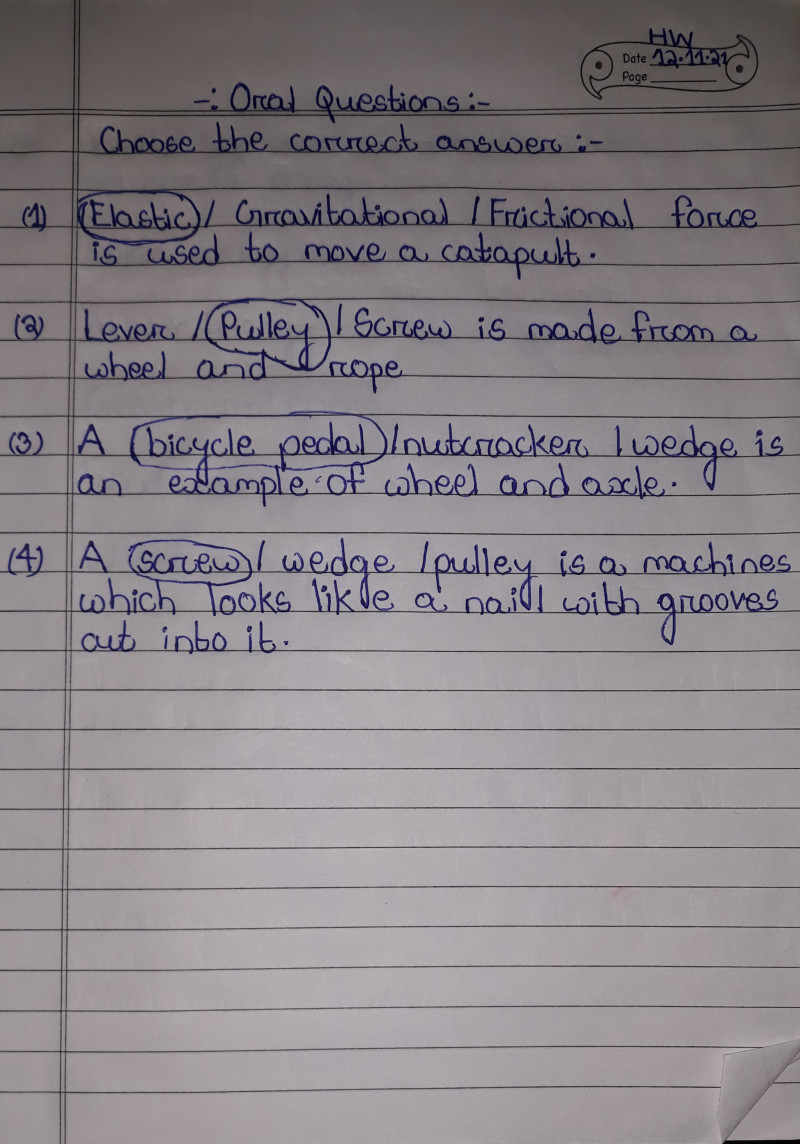 HW
Date 12.11.21
Page
-: Oral Questions:-
Choose the correct answer :-
(1) Elastic / Gravitational / Frictional force
is used to move a catapult.
(2) Lever / Pulley / Screw is made from a
wheel and rope
(3) A bicycle pedal / nutcracker / wedge is
an example of wheel and axle.
(4) A screw / wedge / pulley is a machines
which looks like a nail with grooves
cut into it.